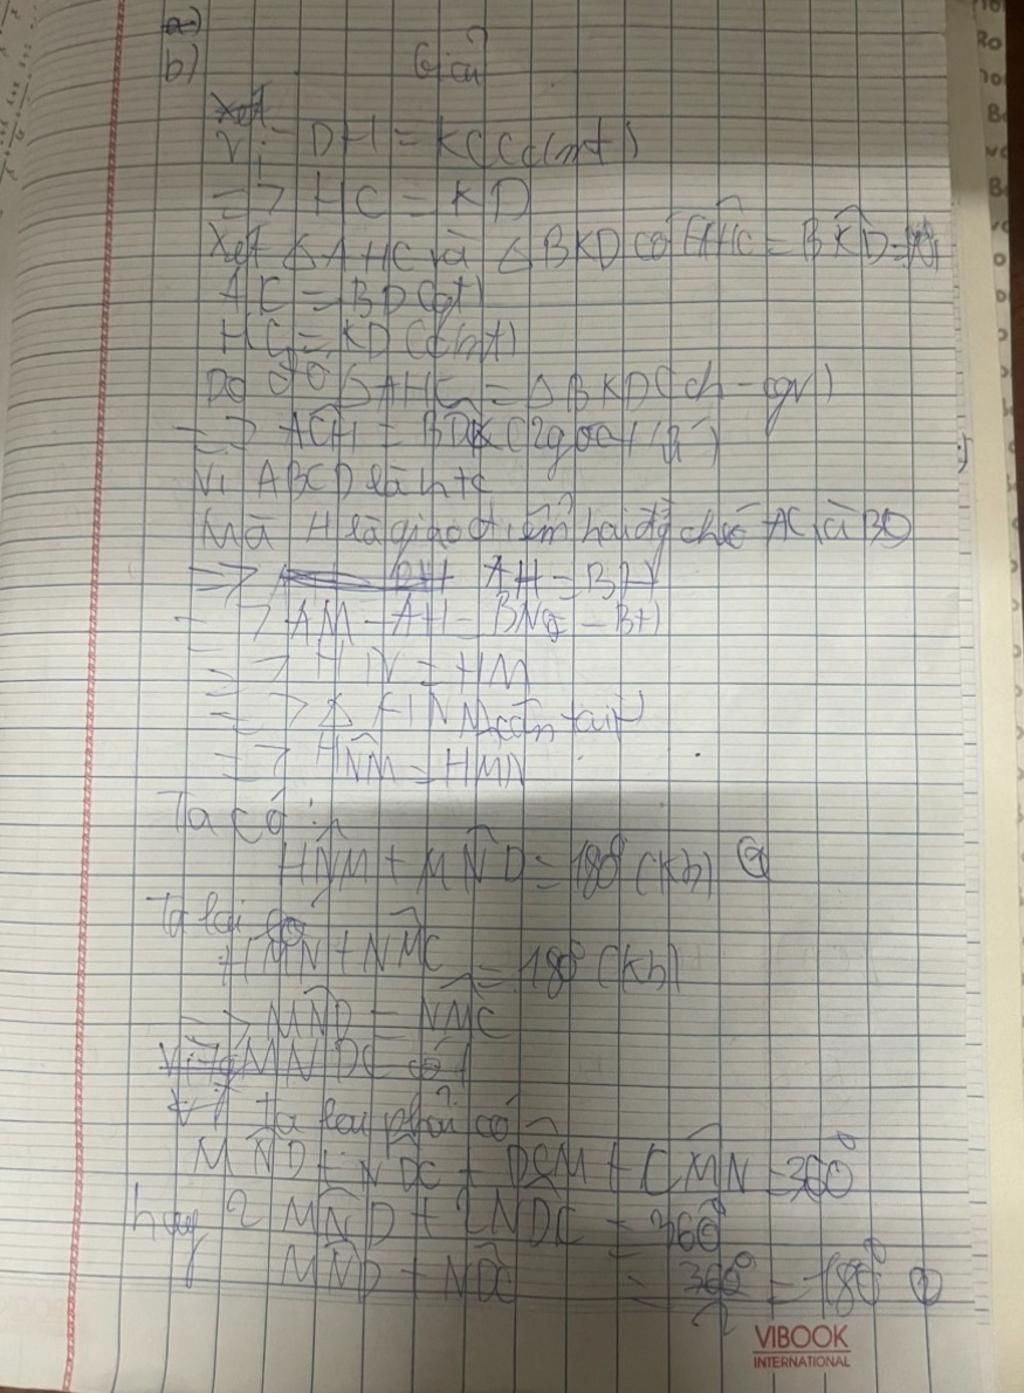 a)
b) Giải
Xét
Vì DH = KC (cmt)
=> HC = KD
Xét △ AHC và △ BKD có AHC = BKD = 90
AC = BD (gt)
HC = KD (cmt)
Do đó △ AHC = △ BKD (ch - cgv)
=> ACH = BDK (2 góc t/ứ)
Vì ABCD là htc
Mà H là giao điểm hai đg chéo AC và BD
=> AH = BH
=> AM - AH = BN - BH
=> HN = HM
=> △ HNM cân tại H
=> HNM = HMN
Ta có:
HNM + MND = 180° (kb)
Ta lại có
HMN + NMC = 180° (kb)
=> MND = NMC
MNDC có
Ta lại phải có
MND + NDC + DCM + CMN = 360°
hay 2 MND + 2NDC = 360°
MND + NDC = 360°/2 = 180° ①
VIBOOK
INTERNATIONAL